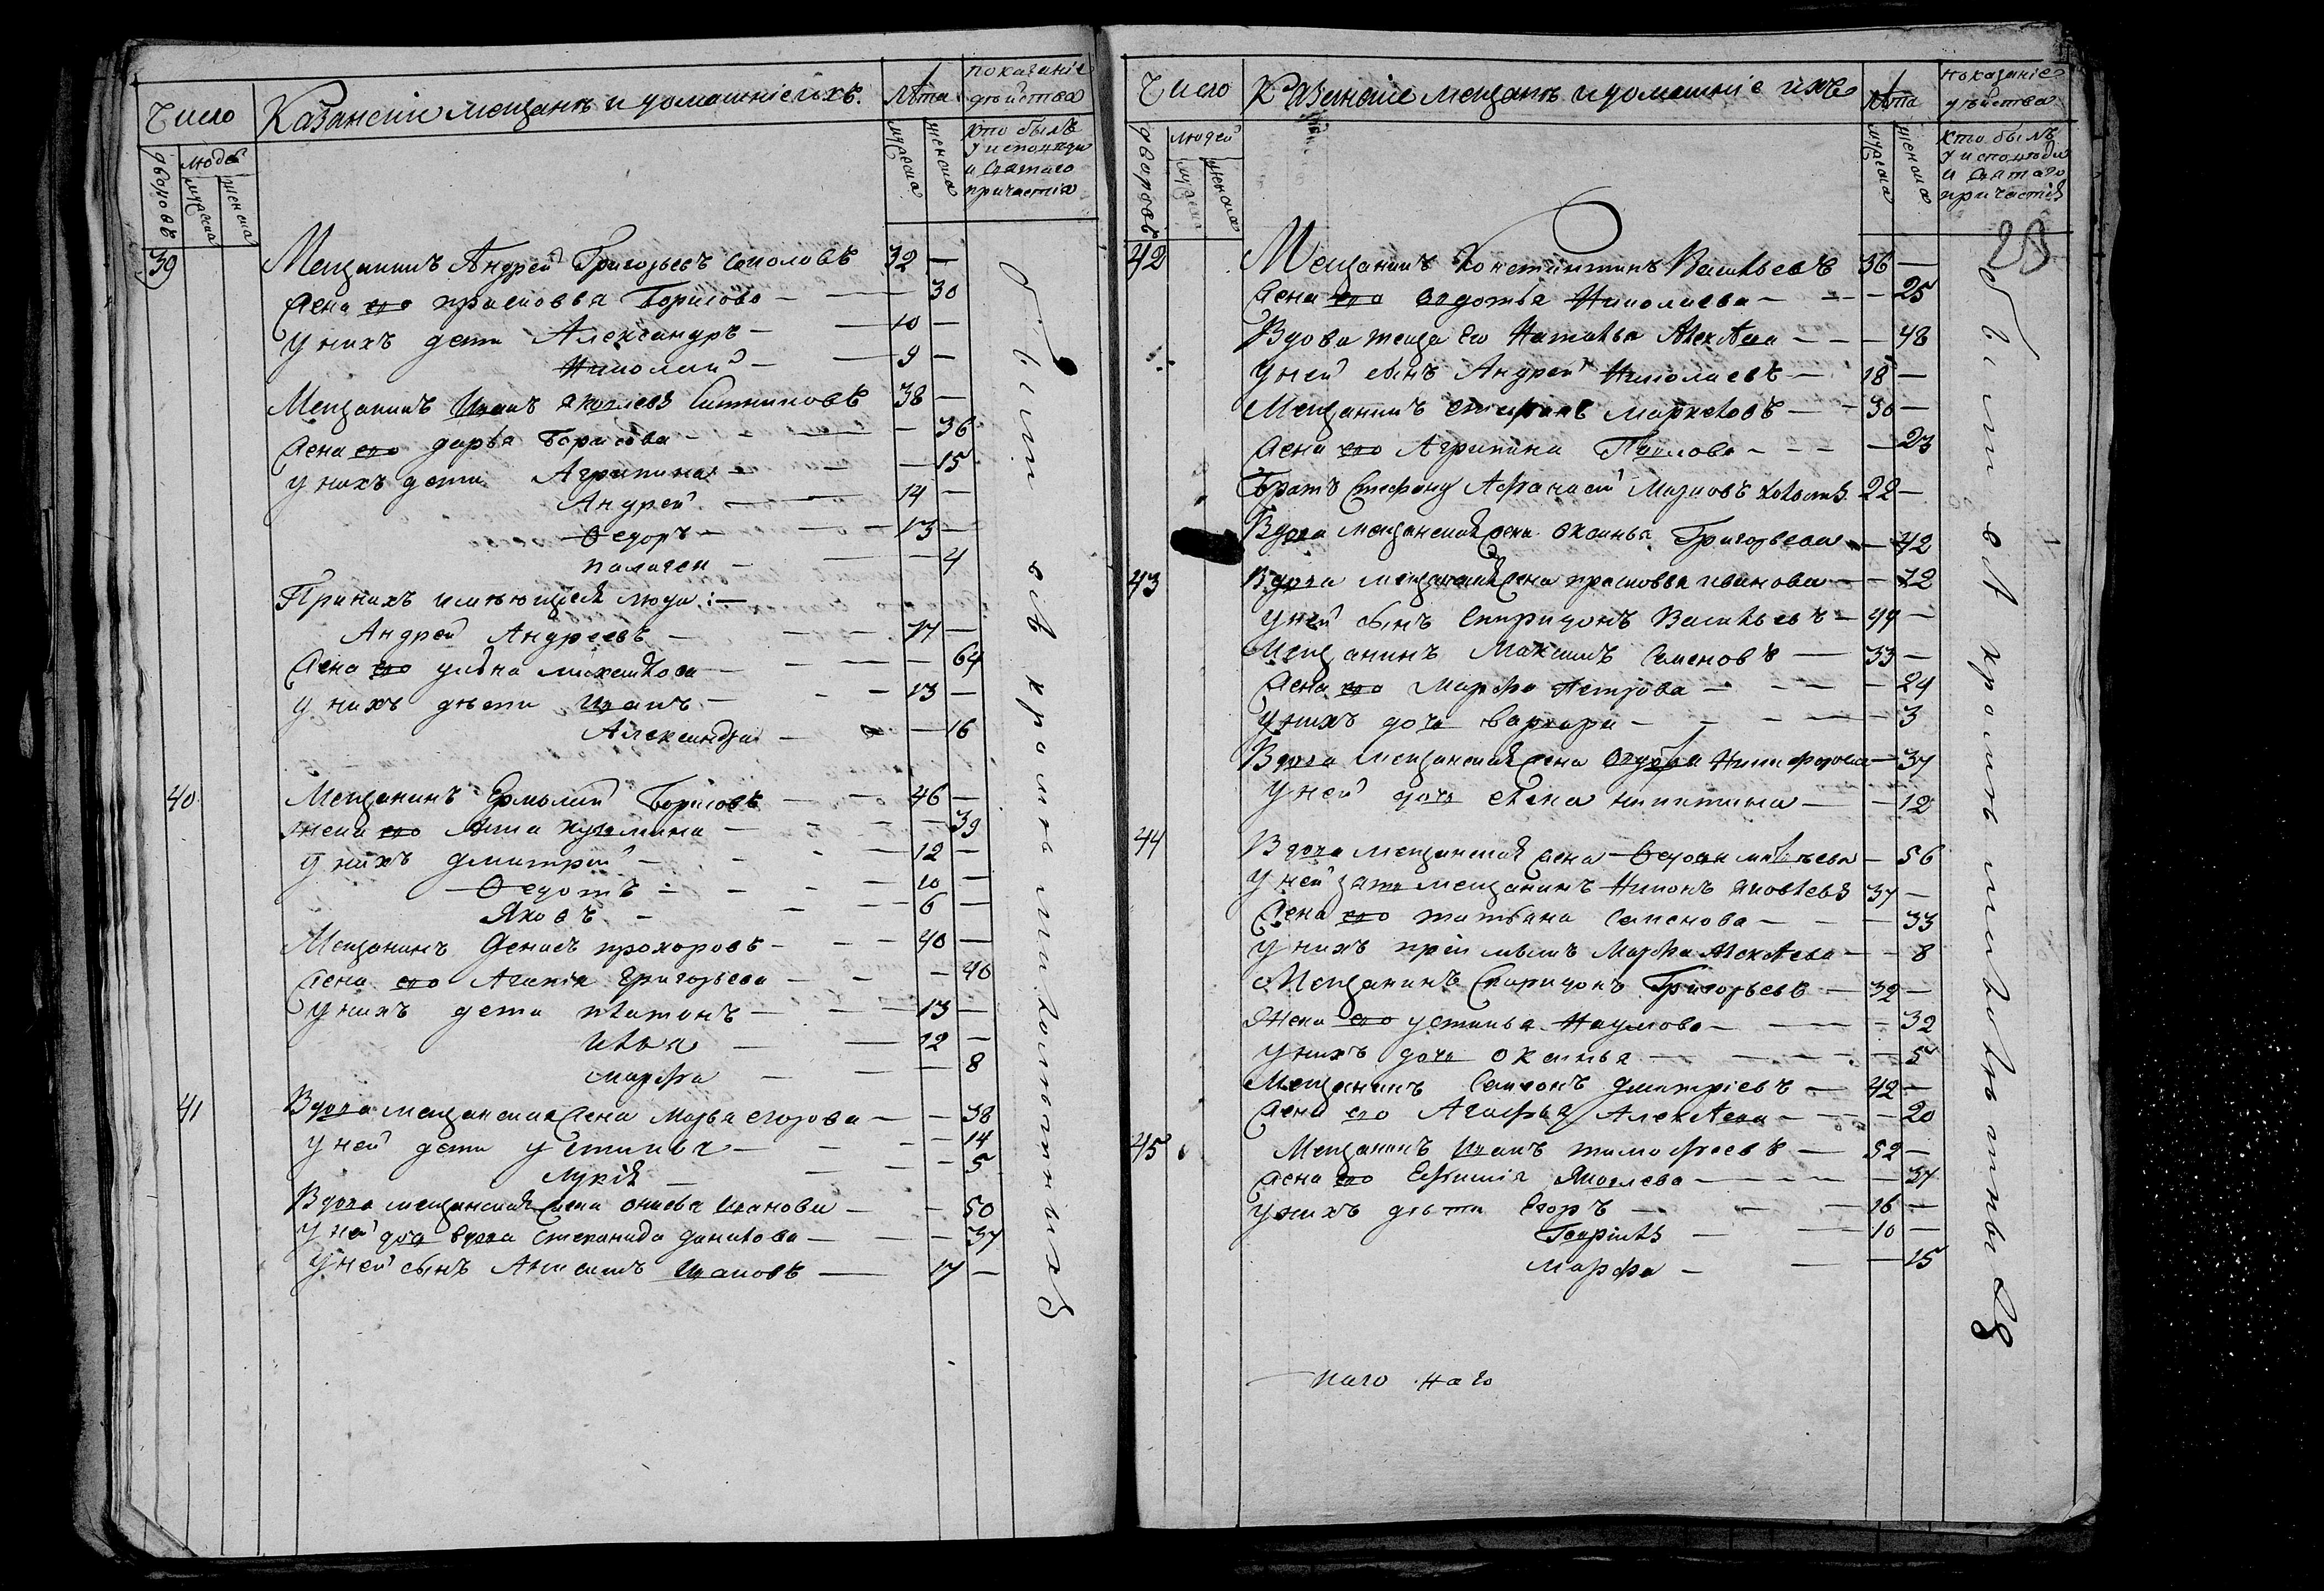 Число
Казанскiи мещанъ и домашнiе ихъ.
Лѣта
показанiе дѣйства
дворовъ
людей
мужеска
женска
мужеска
женска
кто былъ
у исповѣди
и святаго
причастiя
39 Мещанинъ Андрей Григорьевъ Соколовъ 32 —
жена его прасковья Борисова — — 30
у нихъ дети Александръ — — 10 —
Николай — — 9 —
Мещанинъ Иванъ яковлевъ Ситниковъ 38 —
жена его дарья Борисова — — — 36
у нихъ дети Агрипина — — — 15
Андрей — — 14 —
Ѳедоръ — — 13 —
палагея — — — 4
При нихъ имѣющiеся люди: —
Андрей Андреевъ — — — 74 —
жена его улья михайлова — — — 64
у нихъ дѣти Иванъ — — — 13 —
Александра — — 16
40 Мещанинъ Ермолай Борисовъ — — 46 —
жена его Анна кузмина — — — 39
у нихъ дмитрей — — — 12 —
Ѳедотъ — — — 10 —
Яковъ — — — 6 —
Мещанинъ Денисъ прохоровъ — — 40 —
жена его Агапiя григорьева — — — 40
у нихъ дети платонъ — — — 13 —
илья — — 12 —
марфа — — — 8
41 Вдова мещанская жена марья егорова — — 38
у ней дети устинья — — — 14
лукiя — — — 5
Вдова мещанская жена Иванова — — 50
у ней доч вдова степанида данилова — — 37
у ней сынъ Анисимъ Ивановъ — 17 —
были всѣ кромѣ малолѣтныхъ
Число
Казанскiе мещанъ и домашнiе ихъ
Лѣта
показанiе
дѣйства
дворовъ
людей
мужеска
женска
мужеска
женска
кто былъ
у исповѣди
и святаго
причастiя
42 Мещанинъ Константинъ Васильевъ 36 —
жена его авдотья Николаева — — — 25
Вдова теща его Наталья Алексѣева — — — 48
у ней сынъ Андрей Николаевъ — 18 —
Мещанинъ стефанъ Марковъ — — 30 —
жена его Агрипина Павлова — — — 23
Братъ Стефану Афанасей Марковъ холостъ 22 —
Вдова мещанская жена оксинья Григорьева — 42
43 Вдова мещанская жена прасковья иванова — — 72
у ней сынъ спиридонъ Васильевъ — 44 —
Мещанинъ Максимъ Семеновъ — 33 —
жена его марфа петрова — — — 24
у нихъ дочь варвара — — — 3
Вдова мещанская жена авдотья Никифорова — 37
у ней дочь елена никитина — — 12
44 Вдова мещанская жена Ѳедосья — 56
у ней зять мещанинъ Никонъ яковлевъ 37 —
жена его татьяна семенова — — — 33
у нихъ прiимышъ Марфа Алексѣева — — 8
Мещанинъ Спиридонъ Григорьевъ — 32 —
Жена его устинья Наумова — — — 32
у нихъ дочь оксинья — — — 5
Мещанинъ Самсонъ дмитрiевъ — 42 —
жена его Агафья Алексѣева — — — 20
45 Мещанинъ Иванъ тимофеевъ — 52 —
жена его Ефимiя Яковлева — — — 37
у нихъ дѣти Егоръ — — — 16 —
Гаврiилъ — — 10 —
марфа — — — 15
были всѣ кромѣ малолѣтныхъ